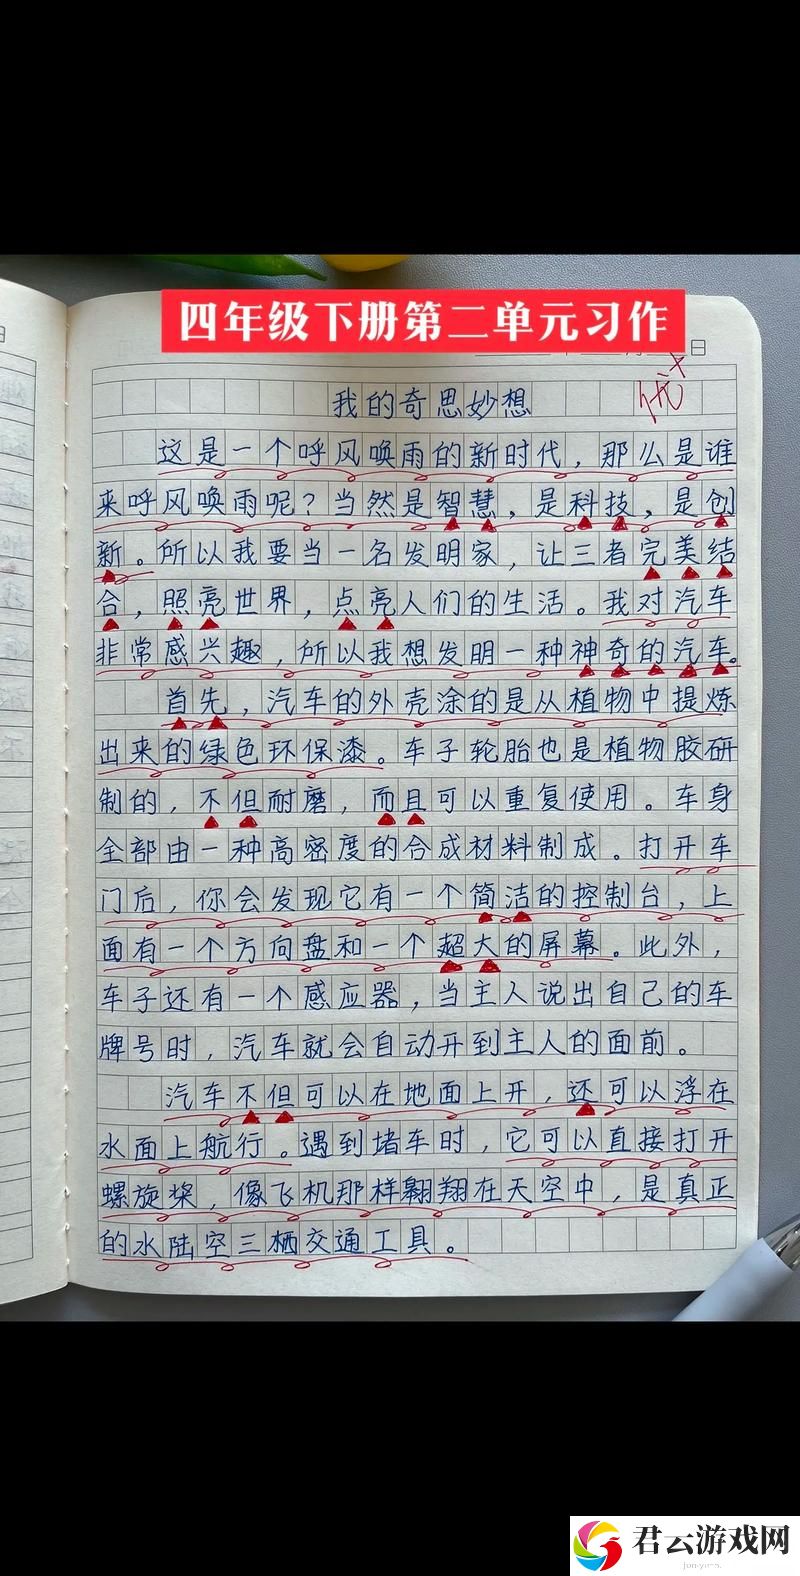 四年级下册第二单元习作
日
我的奇思妙想
优+
这是一个呼风唤雨的新时代，那么是谁
来呼风唤雨呢？当然是智慧，是科技，是创
新。所以我要当一名发明家，让三者完美结
合，照亮世界，点亮人们的生活。我对汽车
非常感兴趣，所以我想发明一种神奇的汽车。
首先，汽车的外壳涂的是从植物中提炼
出来的绿色环保漆。车子轮胎也是植物胶研
制的，不但耐磨，而且可以重复使用。车身
全部由一种高密度的合成材料制成。打开车
门后，你会发现它有一个简洁的控制台，上
面有一个方向盘和一个超大的屏幕。此外，
车子还有一个感应器，当主人说出自己的车
牌号时，汽车就会自动开到主人的面前。
汽车不但可以在地面上开，还可以浮在
水面上航行。遇到堵车时，它可以直接打开
螺旋桨，像飞机那样翱翔在天空中，是真正
的水陆空三栖交通工具。
君云游戏网